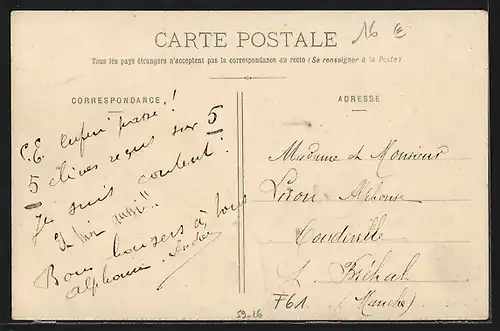 16 €
CARTE POSTALE
Tous les pays étrangers n'acceptent pas la correspondance au recto (Se renseigner à la Poste)
CORRESPONDANCE
C.E. enfin passé!
5 élèves reçus sur 5
Je suis content!
Et moi aussi!!
Bons baisers à tous
Alphonse André
ADRESSE
Madame et Monsieur
Alphouse
Coudeville
Bréhal
(Manche)
59-16
F61